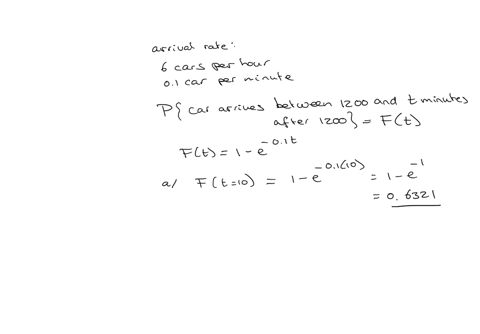 arrival rate:
6 cars per hour
0.1 car per minute
P{car arrives between 1200 and t minutes
after 1200} = F(t)
F(t) = 1 - e^{-0.1t}
a/ F(t=10) = 1 - e^{-0.1(10)} = 1 - e^{-1}
= 0.6321